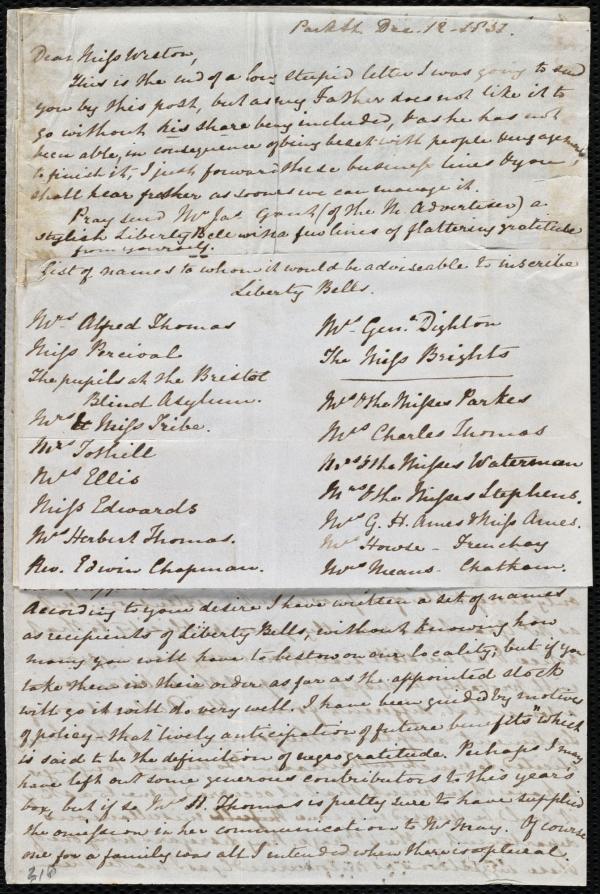 Park St. Dec. 12 - 1851.
Dear Miss Weston,
This is the end of a long stupid letter I was going to send
you by this post, but as my Father does not like it to
go without his share being included, & as he has not
been able, in consequence of being beset with people & engagements
to finish it, I just forward these business lines & you
shall hear further as soon as we can manage it.
Pray send Mr. Jas Grant (of the M. Advertiser) a
stylish Liberty Bell with a few lines of flattering gratitude
from yourself.
List of names to whom it would be adviseable to inscribe
Liberty Bells.
Mrs Alfred Thomas
Miss Percival
The pupils at the Bristol
Blind Asylum.
Mrs & Miss Tribe.
Mrs Tothill
Mrs Ellis
Miss Edwards
Mrs Herbert Thomas.
Rev. Edwin Chapman.
Mrs Genl. Dighton
The Miss Brights
Mrs & the Misses Parkes
Mrs Charles Thomas
Mrs & the Misses Waterman
Mrs & the Misses Stephens.
Mrs G. H. Ames & Miss Ames.
Mrs Howse - Frenchay
Mrs Means - Chatham.
According to your desire I have written a set of names
as recipients of Liberty Bells, without knowing how
many you will have to bestow on our locality; but if you
take them in their order as far as the appointed stock
will go it will do very well. I have been guided by motives
of policy - that "lively anticipation of future benefits" which
is said to be the definition of negro gratitude. Perhaps I may
have left out some generous contributors to this year's
box, but if so Mrs H. Thomas is pretty sure to have supplied
the omission in her communication to Mr May. Of course
one for a family was all I intended when there is a plural.
318